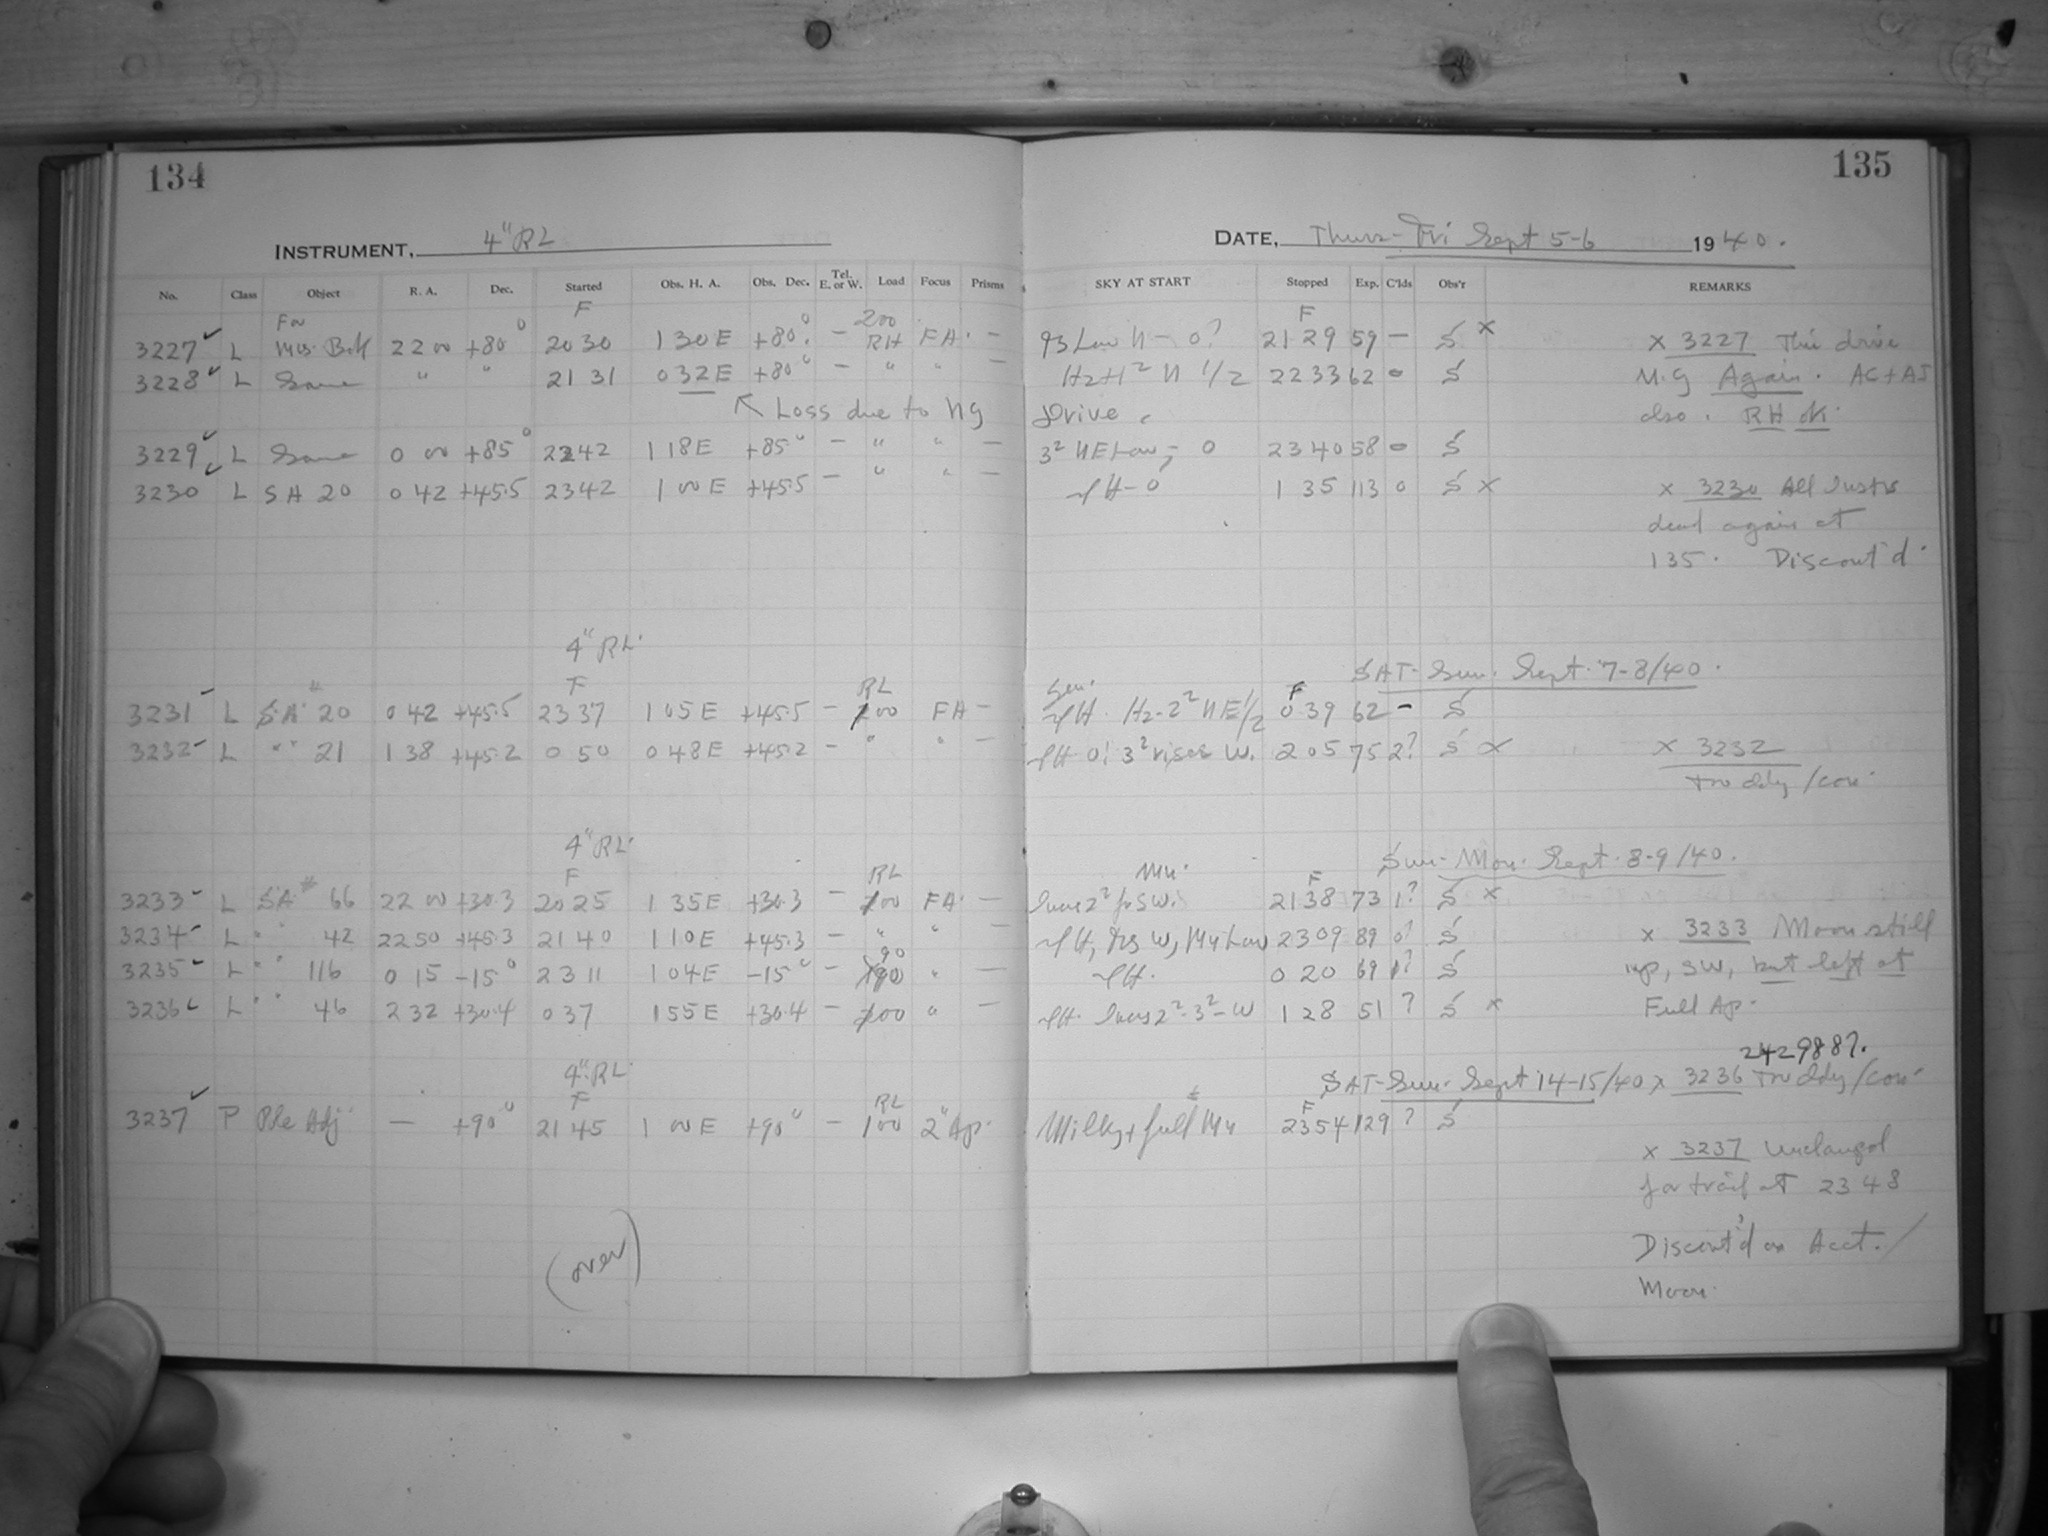 134
135
INSTRUMENT, 4" RL
DATE, Thurs-Fri Sept 5-6 1940.
No. Class Object R. A. Dec. Started Obs. H. A. Obs. Dec. Tel. E. or W. Load Focus Prisms SKY AT START Stopped Exp. C'lds Obs'r REMARKS
F F
For 200
3227 L 22 00 +80° 20 30 1 30 E +80° – RH FA – Low N – 0? 21 29 59 – S x x 3227 This drive
3228 L Same " " 21 31 0 32 E +80° – " " – N 1/2 22 33 62 – S N.G Again. AC + AI
↖ Loss due to NG Drive. also. RH ok.
3229 L Same 0 00 +85° 22 42 1 18 E +85° – " " – 3² NE Low, – 0 23 40 58 – S
3230 L SA 20 0 42 +45.5 23 42 1 00 E +45.5 – " " – 0 1 35 113 0 S x x 3230 All Instrs
dead again at
135. Discont'd.
4" RL.
SAT-Sun. Sept. 7-8/40.
F RL F
3231 L SA # 20 0 42 +45.5 23 37 1 05 E +45.5 – 100 FA – Hz-2² NE 1/2 0 39 62 – S
3232 L " " 21 1 38 +45.2 0 50 0 48 E +45.2 – " " – 0! 3² rises W. 2 05 75 2? S x x 3232
4" RL.
Sun-Mon. Sept. 8-9/40.
F RL F
3233 L SA # 66 22 00 +30.3 20 25 1 35 E +30.3 – 100 FA – 21 38 73 1? S x
3234 L " " 42 22 50 +45.3 21 40 1 10 E +45.3 – " " W, Low 23 09 89 0? S x 3233 Moon still
90
3235 L " " 116 0 15 –15° 23 11 1 04 E –15° – " – 0 20 69 1? S up, SW, but left at
3236 L " " 46 2 32 +30.4 0 37 1 55 E +30.4 – 100 " – W 1 28 51 ? S x Full Ap.
2429887.
4" RL.
SAT-Sun. Sept 14-15/40 x 3236
F RL F
3237 P Ple Adj – +90° 21 45 1 00 E +90° – 100 2" Ap. Milky + full 23 54 129 ? S
x 3237 unclamped
for trail at 23 48
Discont'd on Acct.
Moon.
(over)